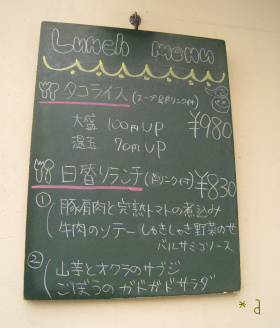 Lunch menu
タコライス(スープ&ドリンク付) ¥980
大盛 100円UP
温玉 70円UP
日替りランチ(ドリンク付) ¥830
① 豚肩肉と完熟トマトの煮込み
牛肉のソテー しゃきしゃき野菜のせ
バルサミコソース
② 山芋とオクラのサブジ
ごぼうのガドガドサラダ
* a